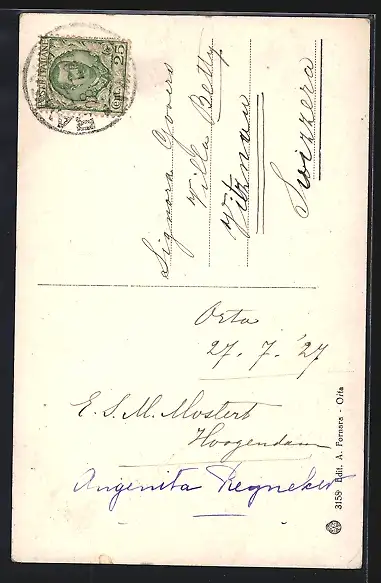 25
Cent.
Signora Govers
Villa Betty
Vitznau
Svizzera
Orta
27. 7. '27
E. S. M. Mostert
Hoogendam
Angenita Regneker
3159 Edit. A. Fornara - Orta